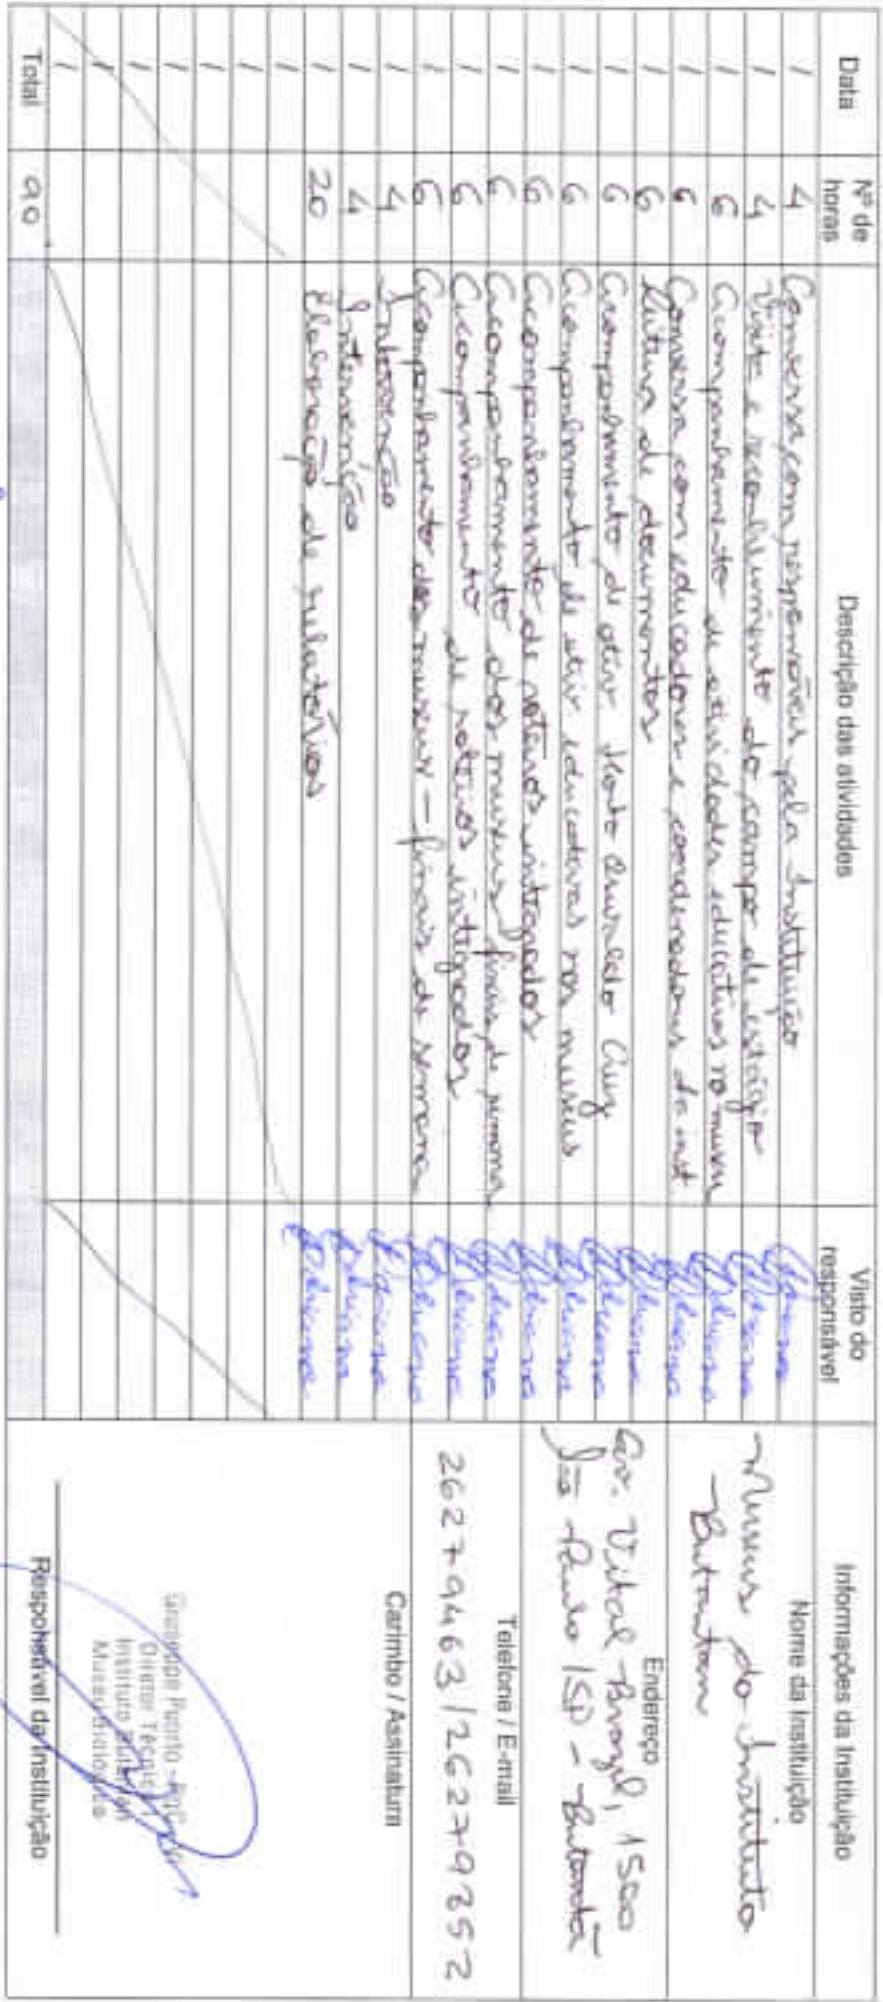 Data Nº de horas Descrição das atividades Visto do responsável
/ 4 Conversa com responsáveis pela Instituição
/ 4 Visita e reconhecimento do campo de estágio
/ 6 Acompanhamento de atividades educativas no museu
/ 6 Conversa com educadores e coordenadores da inst
/ 6 Leitura de documentos
/ 6 Acompanhamento de ativ Horto Oswaldo Cruz
/ 6 Acompanhamento de ativ educativas nos museus
/ 6 Acompanhamento de roteiros integrados
/ 6 Acompanhamento dos museus finais de semana
/ 6 Acompanhamento de roteiros integrados
/ 6 Acompanhamento dos museus - finais de semana
/ 4 Intervenção
/ 4 Intervenção
/ 20 Elaboração de relatórios
/
/
/
/
/
/
Total 90
Informações da Instituição
Nome da Instituição
Museus do Instituto
Butantan
Endereço
Av. Vital Brazil, 1500
São Paulo / SP - Butantã
Telefone / E-mail
26279463 / 26279352
Carimbo / Assinatura
Giuseppe Puorto
Diretor Técnico
Instituto Butantan
Museu Biológico
Responsável da Instituição